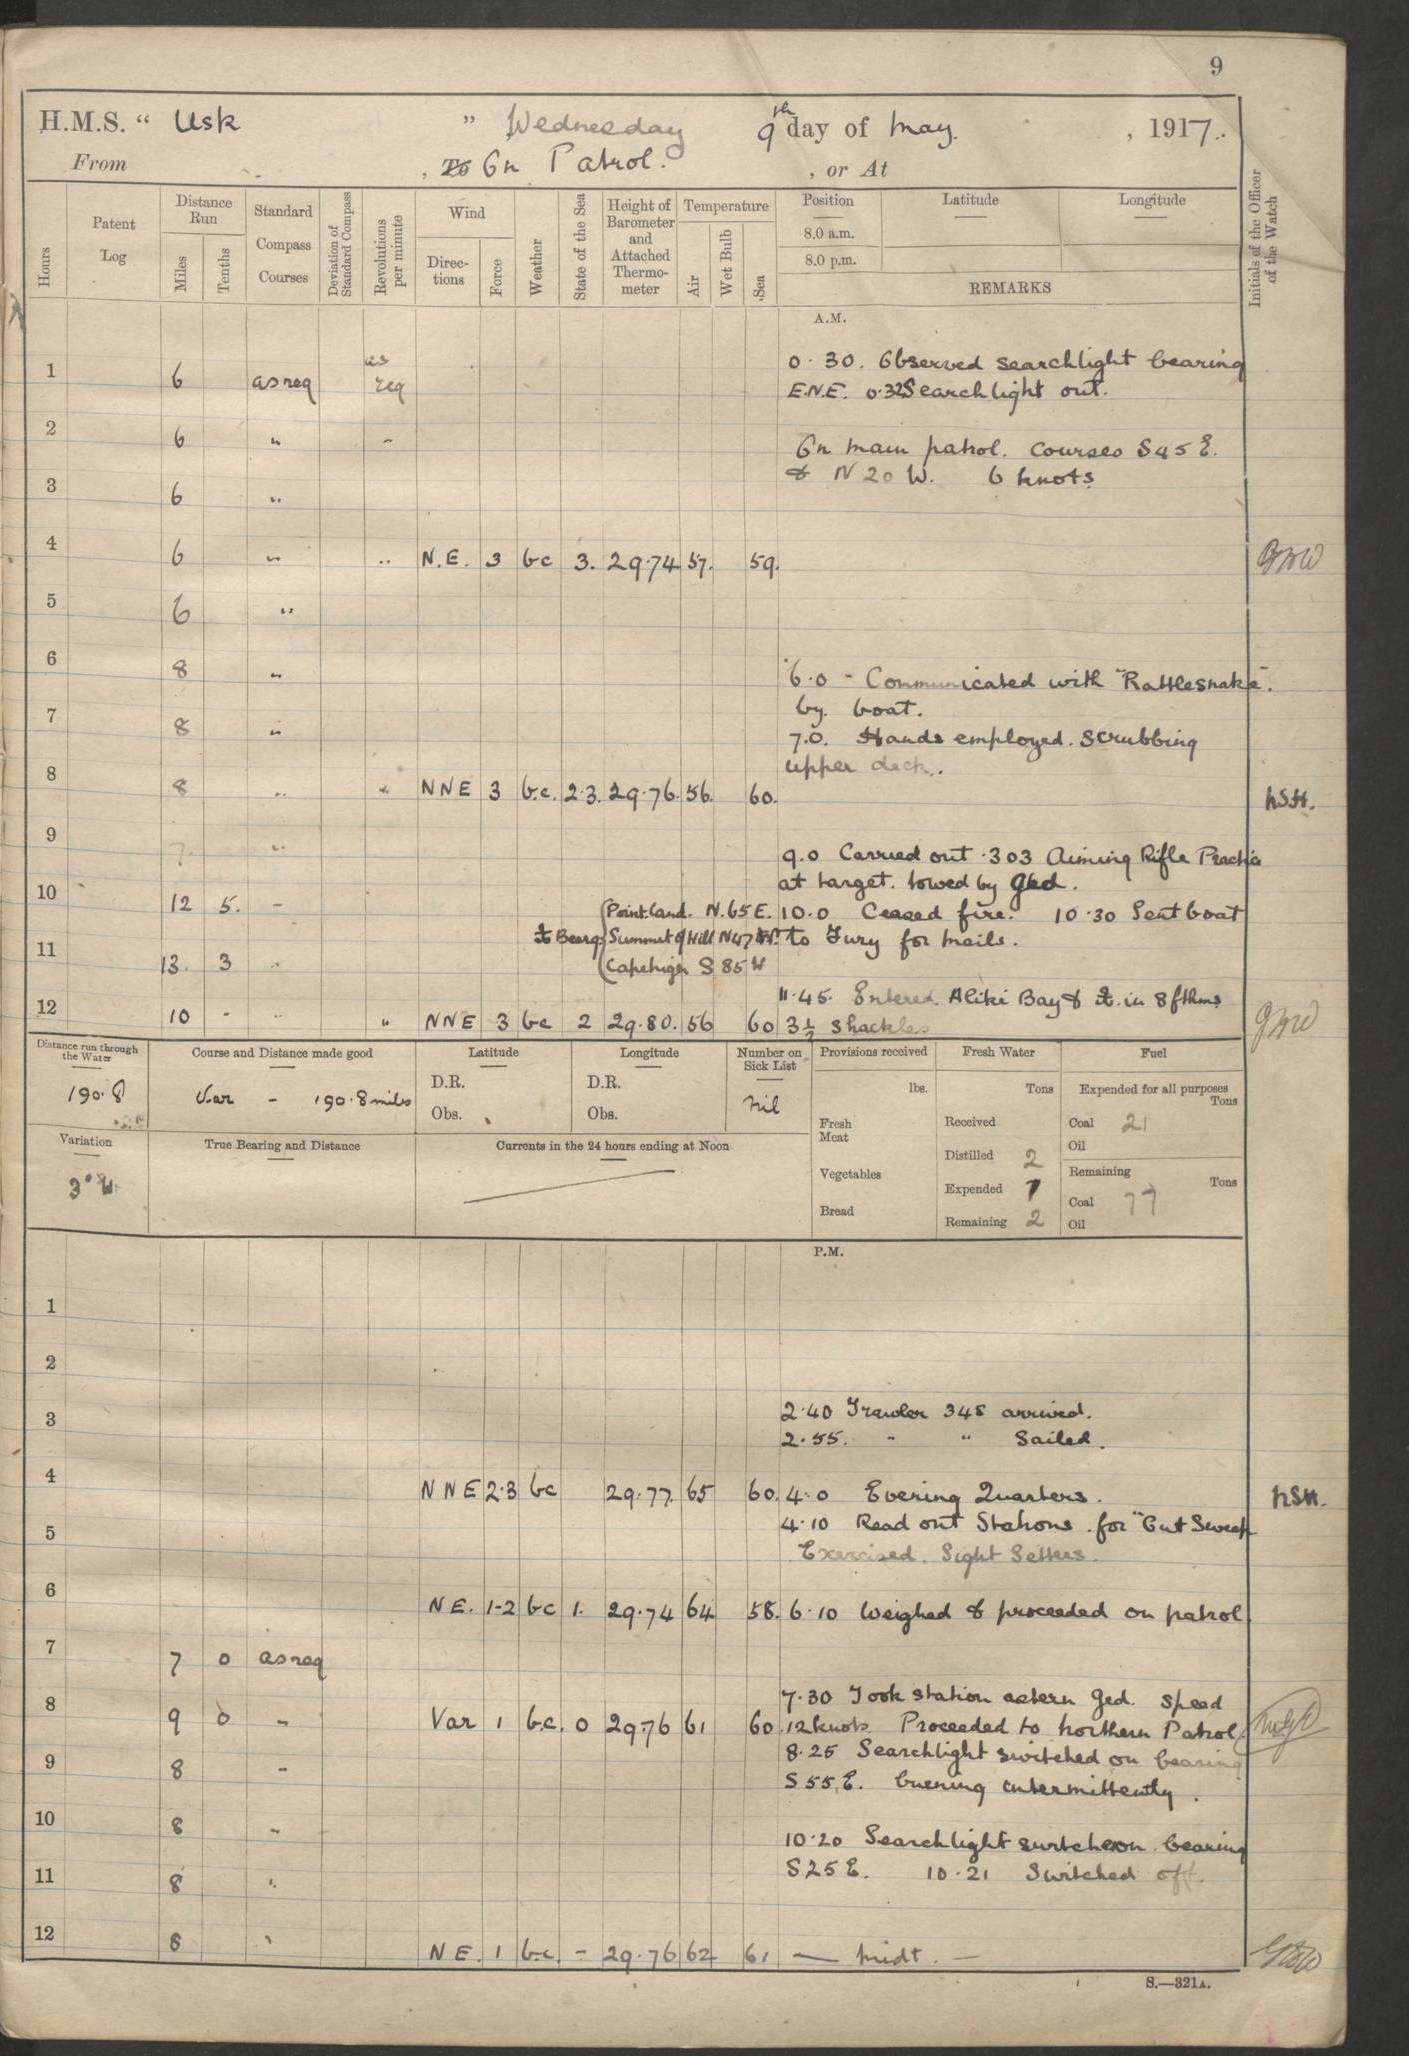 9
H.M.S. “ Usk ” Wednesday 9th day of May. , 1917.
From , To On Patrol. , or At
Hours
Patent Log
Distance Run
Miles
Tenths
Standard Compass Courses
Deviation of Standard Compass
Revolutions per minute
Wind
Direc-tions
Force
Weather
State of the Sea
Height of Barometer and Attached Thermo-meter
Temperature
Air
Wet Bulb
Sea
Position
8.0 a.m.
8.0 p.m.
Latitude
Longitude
REMARKS
Initials of the Officer of the Watch
A.M.
1 6 as req as req 0.30. Observed searchlight bearing
E.N.E. 0.32 Searchlight out.
2 6 " "
On main patrol. Courses S45E.
& N 20 W. 6 knots
3 6 "
4 6 " " N.E. 3 bc 3. 29.74 57. 59.
5 6 "
6 8 " 6.0 - Communicated with "Rattlesnake".
by boat.
7 8 " 7.0. Hands employed. Scrubbing
upper deck.
8 8 " " NNE 3 b.c. 2.3. 29.76. 56. 60. hSH.
9 7 " 9.0 Carried out .303 Aiming Rifle Practice
at target. towed by Ged.
10 12 5. - Point. land. N.65E. 10.0 Ceased fire. 10.30 Sent boat
Bearg. Summit of Hill N47W. to Fury for mails.
11 13. 3 " S 85 W
11.45. Entered Aliki Bay & in 8 fthms
12 10 - " " NNE 3 bc 2 29.80. 56 60 3½ Shackles
Distance run through the Water
190.8
Course and Distance made good
Var - 190.8 miles
Latitude
D.R.
Obs.
Longitude
D.R.
Obs.
Number on Sick List
nil
Provisions received
lbs.
Fresh Meat
Vegetables
Bread
Fresh Water
Tons
Received
Distilled 2
Expended
Remaining 2
Fuel
Expended for all purposes
Tons
Coal 21
Oil
Remaining
Tons
Coal 77
Oil
Variation
3° W.
True Bearing and Distance
Currents in the 24 hours ending at Noon
P.M.
1
2
3 2.40 Trawler 348 arrived.
2.55. " " Sailed.
4 NNE 2.3 bc 29.77. 65 60. 4.0 Evening Quarters. hSH.
4.10 Read out Stations for "Out Sweep
5 Exercised. Sight Setters.
6 NE. 1-2 bc 1. 29.74 64 58. 6.10 Weighed & proceeded on patrol
7 7 0 as req
7.30 Took station astern Ged. Speed
8 9 0 " Var 1 b.c. 0 29.76 61 60. 12 knots. Proceeded to Northern Patrol
8.25 Searchlight switched on bearing
9 8 " S 55 E. burning intermittently.
10 8 " 10.20 Searchlight switched on bearing
S25E. 10.21 Switched off.
11 8 "
12 8 " NE. 1 b.c. - 29.76 62 61 — midt. —
S.—321A.